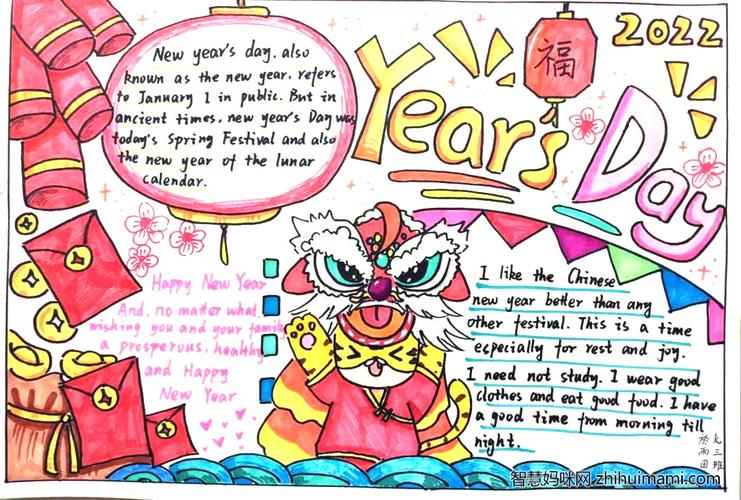 2022
福
Year's
Day
New year's day, also
known as the new year, refers
to January 1 in public. But in
ancient times, new year's Day was
today's Spring Festival and also
the new year of the lunar
calendar.
Happy New Year
And, no matter what,
wishing you and your family
a prosperous, healthy
and Happy
New Year
I like the Chinese
new year better than any
other festival. This is a time
especially for rest and joy.
I need not study. I wear good
clothes and eat good food. I have
a good time from morning till
night.
三班
智慧妈咪网 zhihuimami.com